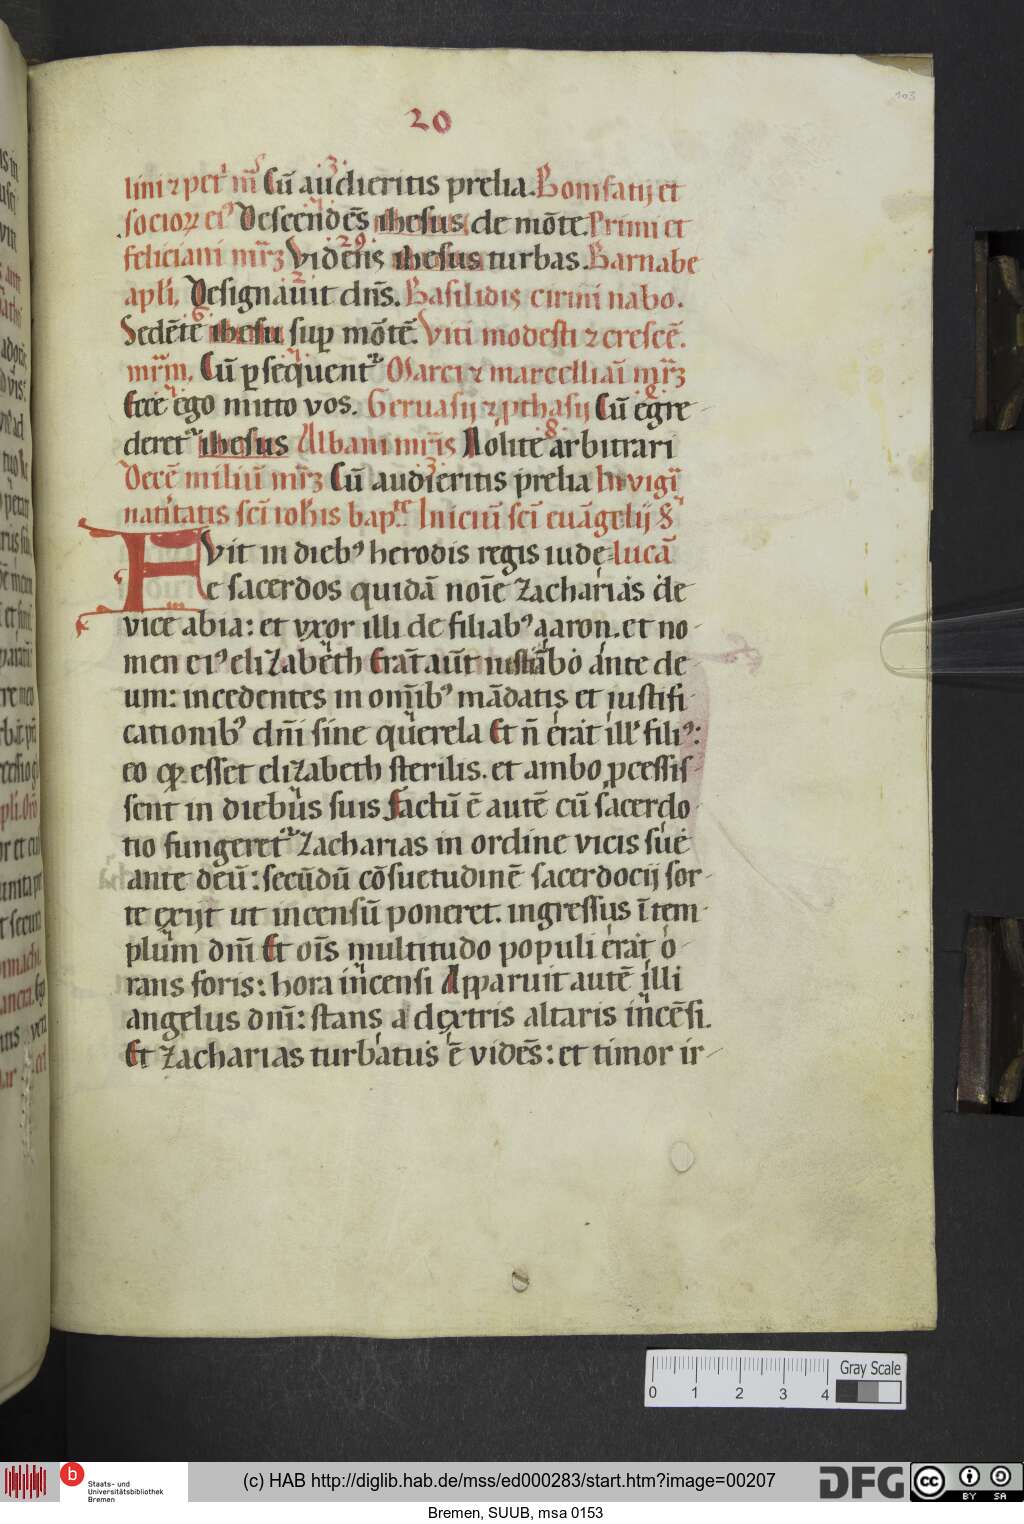 103
20
lini ⁊ petˢ mr̄ Cū audieritis prelia. Bonifatij et
socioꝝ eiꝰ Descendēs ihesus de mōte. Primi et
feliciani mr̄ꝫ Videns ihesus turbas. Barnabe
apl̄i. Designauit dn̄s. Basilidis cirini nabo.
Sedēte ihesu suꝑ mōtē. Viti modesti ⁊ crescē.
mr̄m. Cū ꝑsequent᷑ Marci ⁊ marcelliaī mr̄ꝫ
Ecce ego mitto vos. Geruasij ⁊ ꝓthasij Cū egre
deret᷑ ihesus Albani mr̄is Nolite arbitrari
Decē miliū mr̄ꝫ Cū audieritis prelia In vigi
natitatis sc̄i ioh̄is bapt̄ Iniciū sc̄i euāgelij s̄
FVit in diebꝰ herodis regis iudę lucā
e sacerdos quidā noīe zacharias de
vice abia: et vxor illi de filiabꝰ aaron. et no
men eiꝰ elizabeth Erāt aūt iusti ābo ante de
um: incedentes in om̄ibꝰ mādatis et iustifi
cationibꝰ dn̄i sine querela Et n̄ erat illˢ filiꝰ:
eo ꝙ esset elizabeth sterilis. et ambo ꝓcessis
sent in diebus suis Factū ē autē cū sacerdo
tio fungeret᷑ zacharias in ordine vicis sue
ante deū: secūdū cōsuetudinē sacerdocij sor
te exijt ut incensū poneret. ingressus ī tem
plum dn̄i Et oīs multitudo populi erat o
rans foris: hora incensi Apparuit autē illi
angelus dn̄i: stans a dextris altaris incēsi.
Et zacharias turbatus ē vidēs: et timor ir
Gray Scale
0 1 2 3 4
b
Staats- und
Universitätsbibliothek
Bremen
(c) HAB http://diglib.hab.de/mss/ed000283/start.htm?image=00207
DFG
cc BY SA
Bremen, SUUB, msa 0153